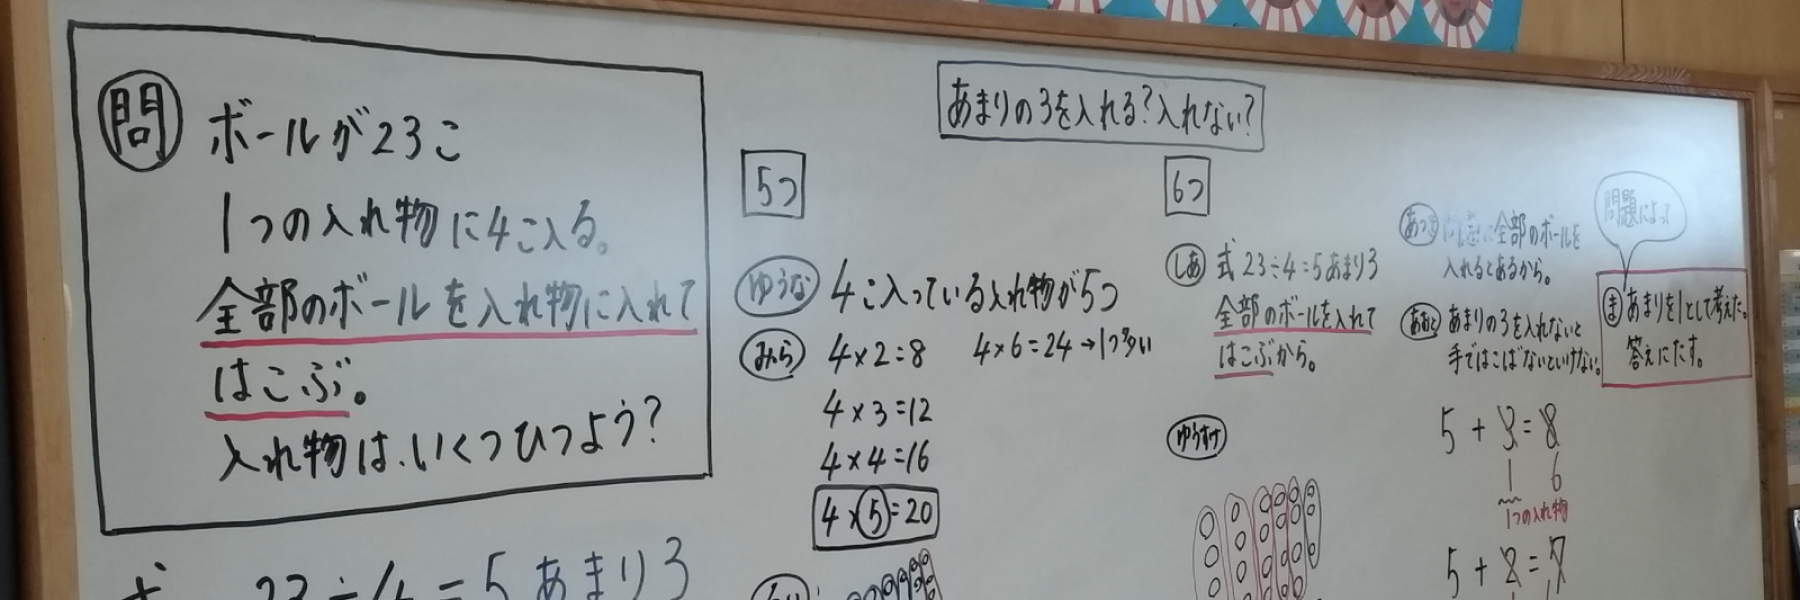 問
ボールが23こ
1つの入れ物に4こ入る。
全部のボールを入れ物に入れて
はこぶ。
入れ物は、いくつひつよう?
式 23÷4=5あまり3
あまりの3を入れる?入れない?
5つ
ゆうな 4こ入っている入れ物が5つ
みら 4×2=8 4×6=24→1つ多い
4×3=12
4×4=16
4×5=20
6つ
しあ 式 23÷4=5あまり3
全部のボールを入れて
はこぶから。
ゆうすけ
問題に全部のボールを
入れるとあるから。
あまりの3を入れないと
手ではこばないといけない。
5+3=8
1 6
1つの入れ物
5+2=7
問題によって
ま あまりを1として考えた。
答えにたす。